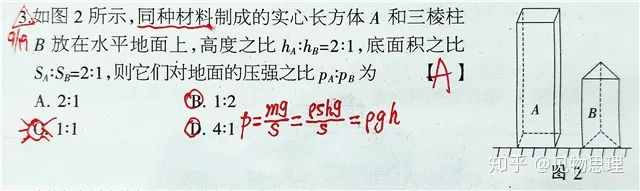 3.如图 2 所示,同种材料制成的实心长方体 A 和三棱柱
9/19
B 放在水平地面上,高度之比 hA:hB=2:1,底面积之比
SA:SB=2:1,则它们对地面的压强之比 pA:pB 为 【A】
A. 2:1 B. 1:2
C. 1:1 D. 4:1
p=mg/S=ρshg/S=ρgh
A B
图 2
知乎 @见物思理